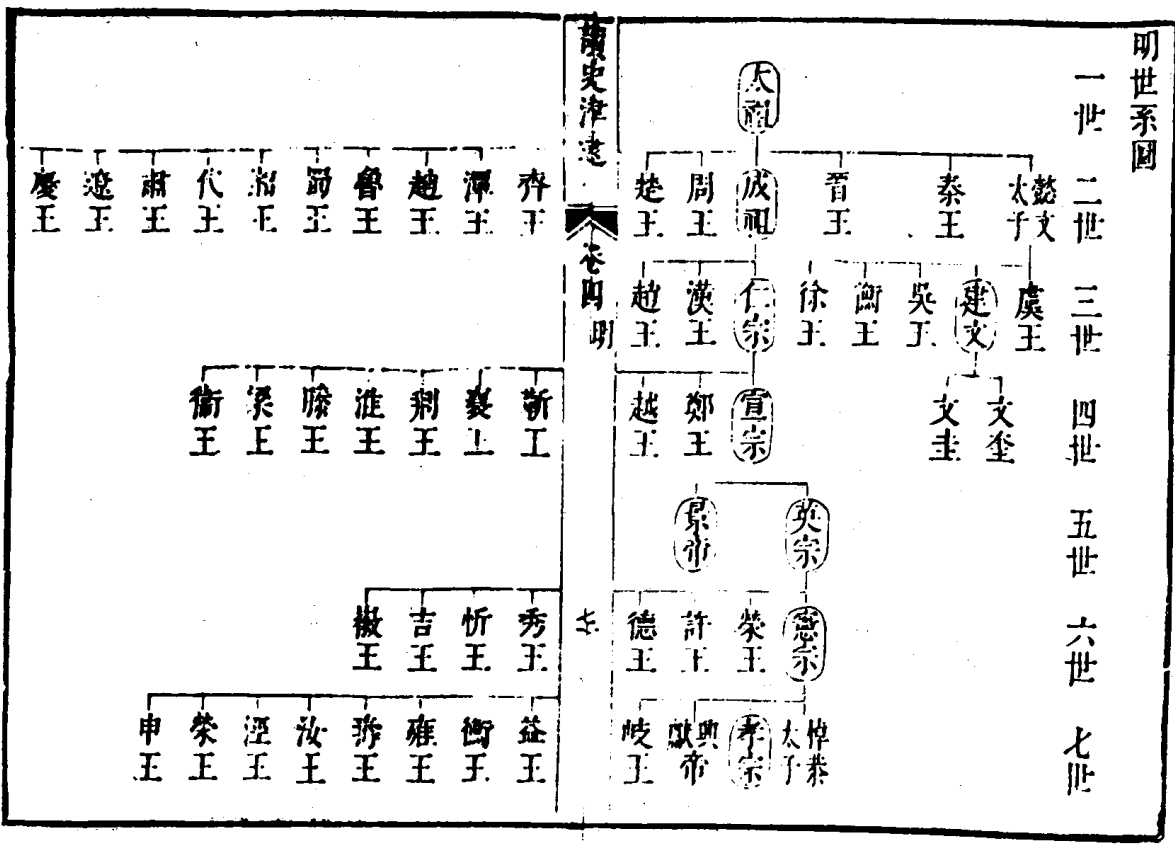 明世系圖
一世
太祖
二世
懿文太子
秦王
晉王
成祖
周王
楚王
齊王
潭王
趙王
魯王
蜀王
湘王
代王
肅王
遼王
慶王
三世
虞王
建文
吳王
衡王
徐王
仁宗
漢王
趙王
四世
文奎
文圭
宣宗
鄭王
越王
蘄王
襄王
荆王
淮王
滕王
梁王
衞王
五世
英宗
景帝
六世
憲宗
榮王
許王
德王
秀王
忻王
吉王
徽王
七世
悼恭太子
孝宗
興獻帝
岐王
益王
衡王
雍王
壽王
汝王
涇王
榮王
申王
讀史津逮
卷四
明
七